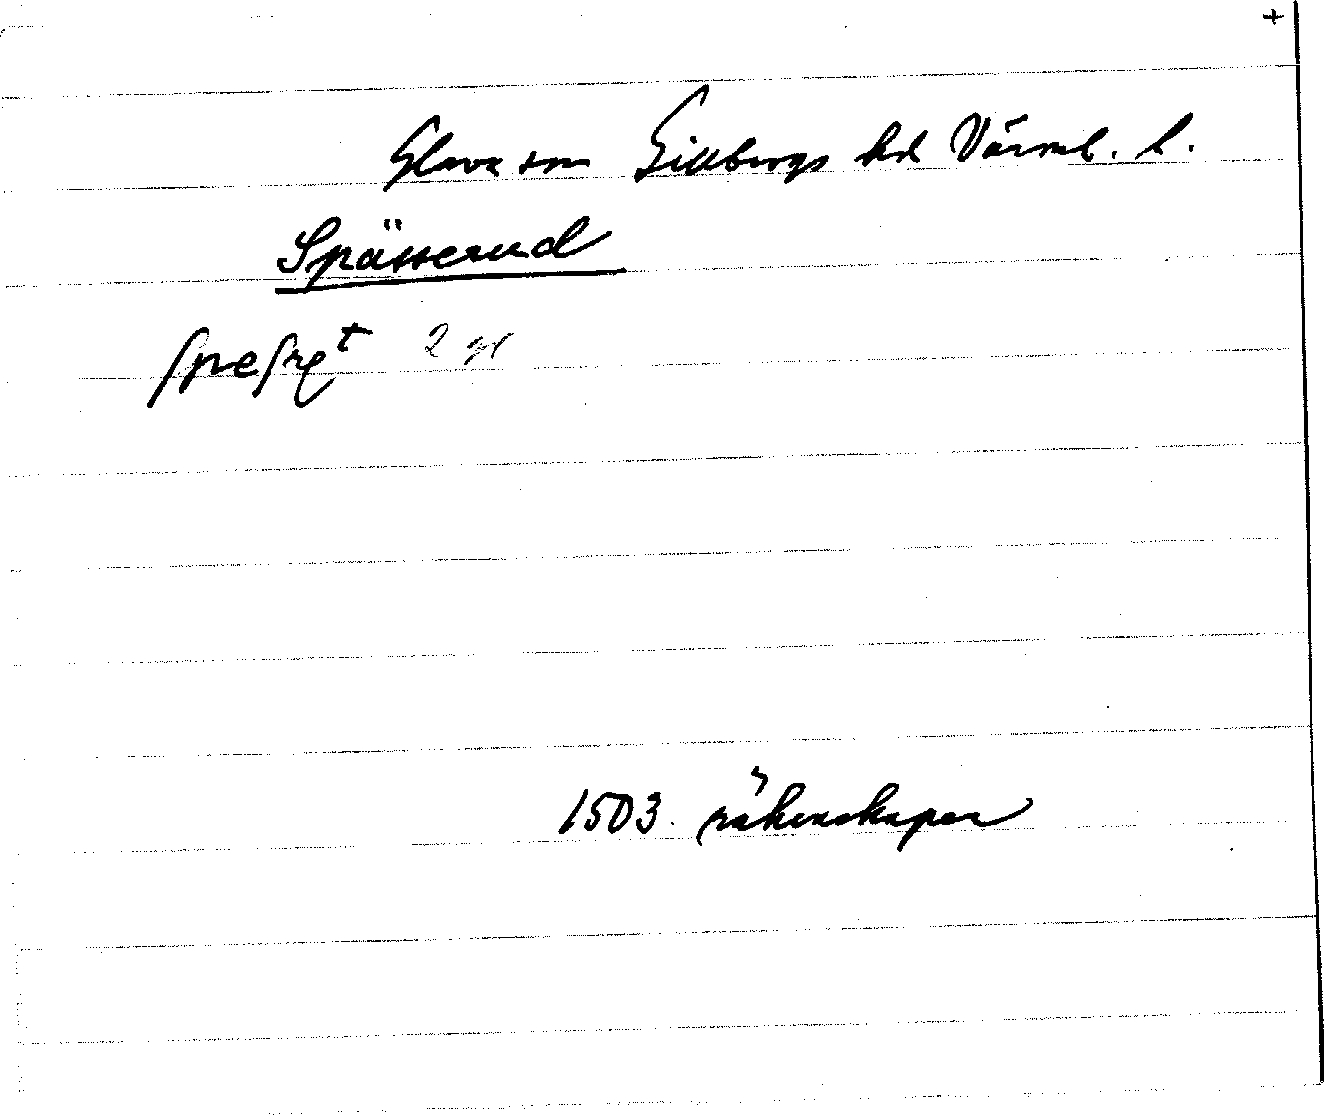 +
Glava sn Gillbergs hd Värml. l.
Spässerud
speſryt 2 gl
1503. räkenskaper